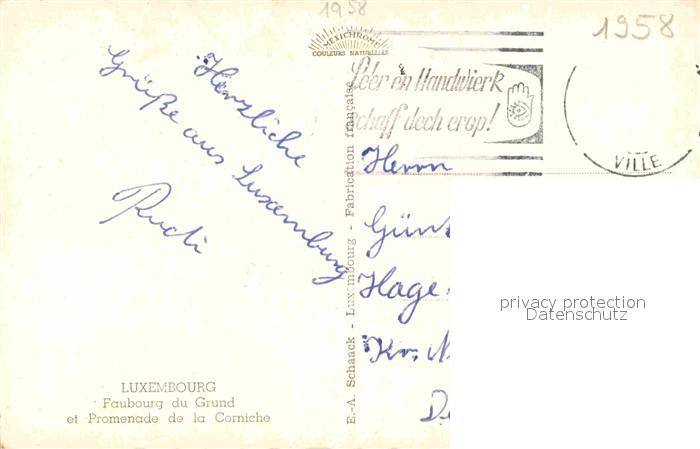 1958
1958
MEXICHROME
COULEURS NATURELLES
Léer en Handwierk
schaff dech erop!
VILLE
Herzliche
Grüße aus Luxemburg
Rudi
Herrn
Hage
Kr. N
E.-A. Schaack - Luxembourg - Fabrication française
privacy protection
Datenschutz
LUXEMBOURG
Faubourg du Grund
et Promenade de la Corniche